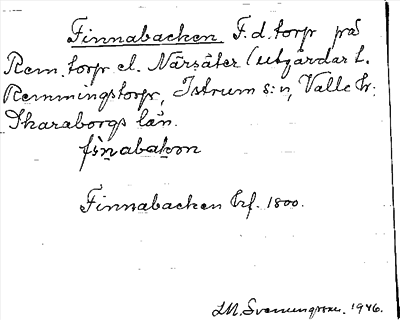 Finnabacken F.d. torp på
Rem.torp el. Närsäter (utgårdar t.
Remmingstorp, Istrum s:n, Valle hr:
Skaraborgs län.
finabakən
Finnabacken brf. 1800.
1946.